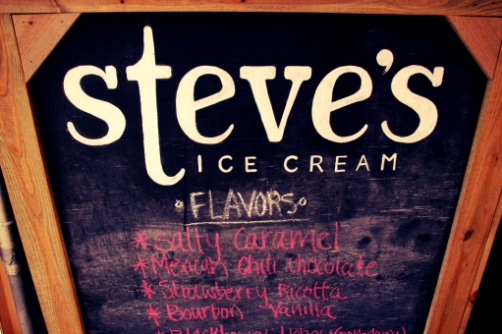 steve's
ICE CREAM
FLAVORS
* Salty Caramel
* Mexican Chili Chocolate
* Strawberry Ricotta
* Bourbon Vanilla
* Blackberry